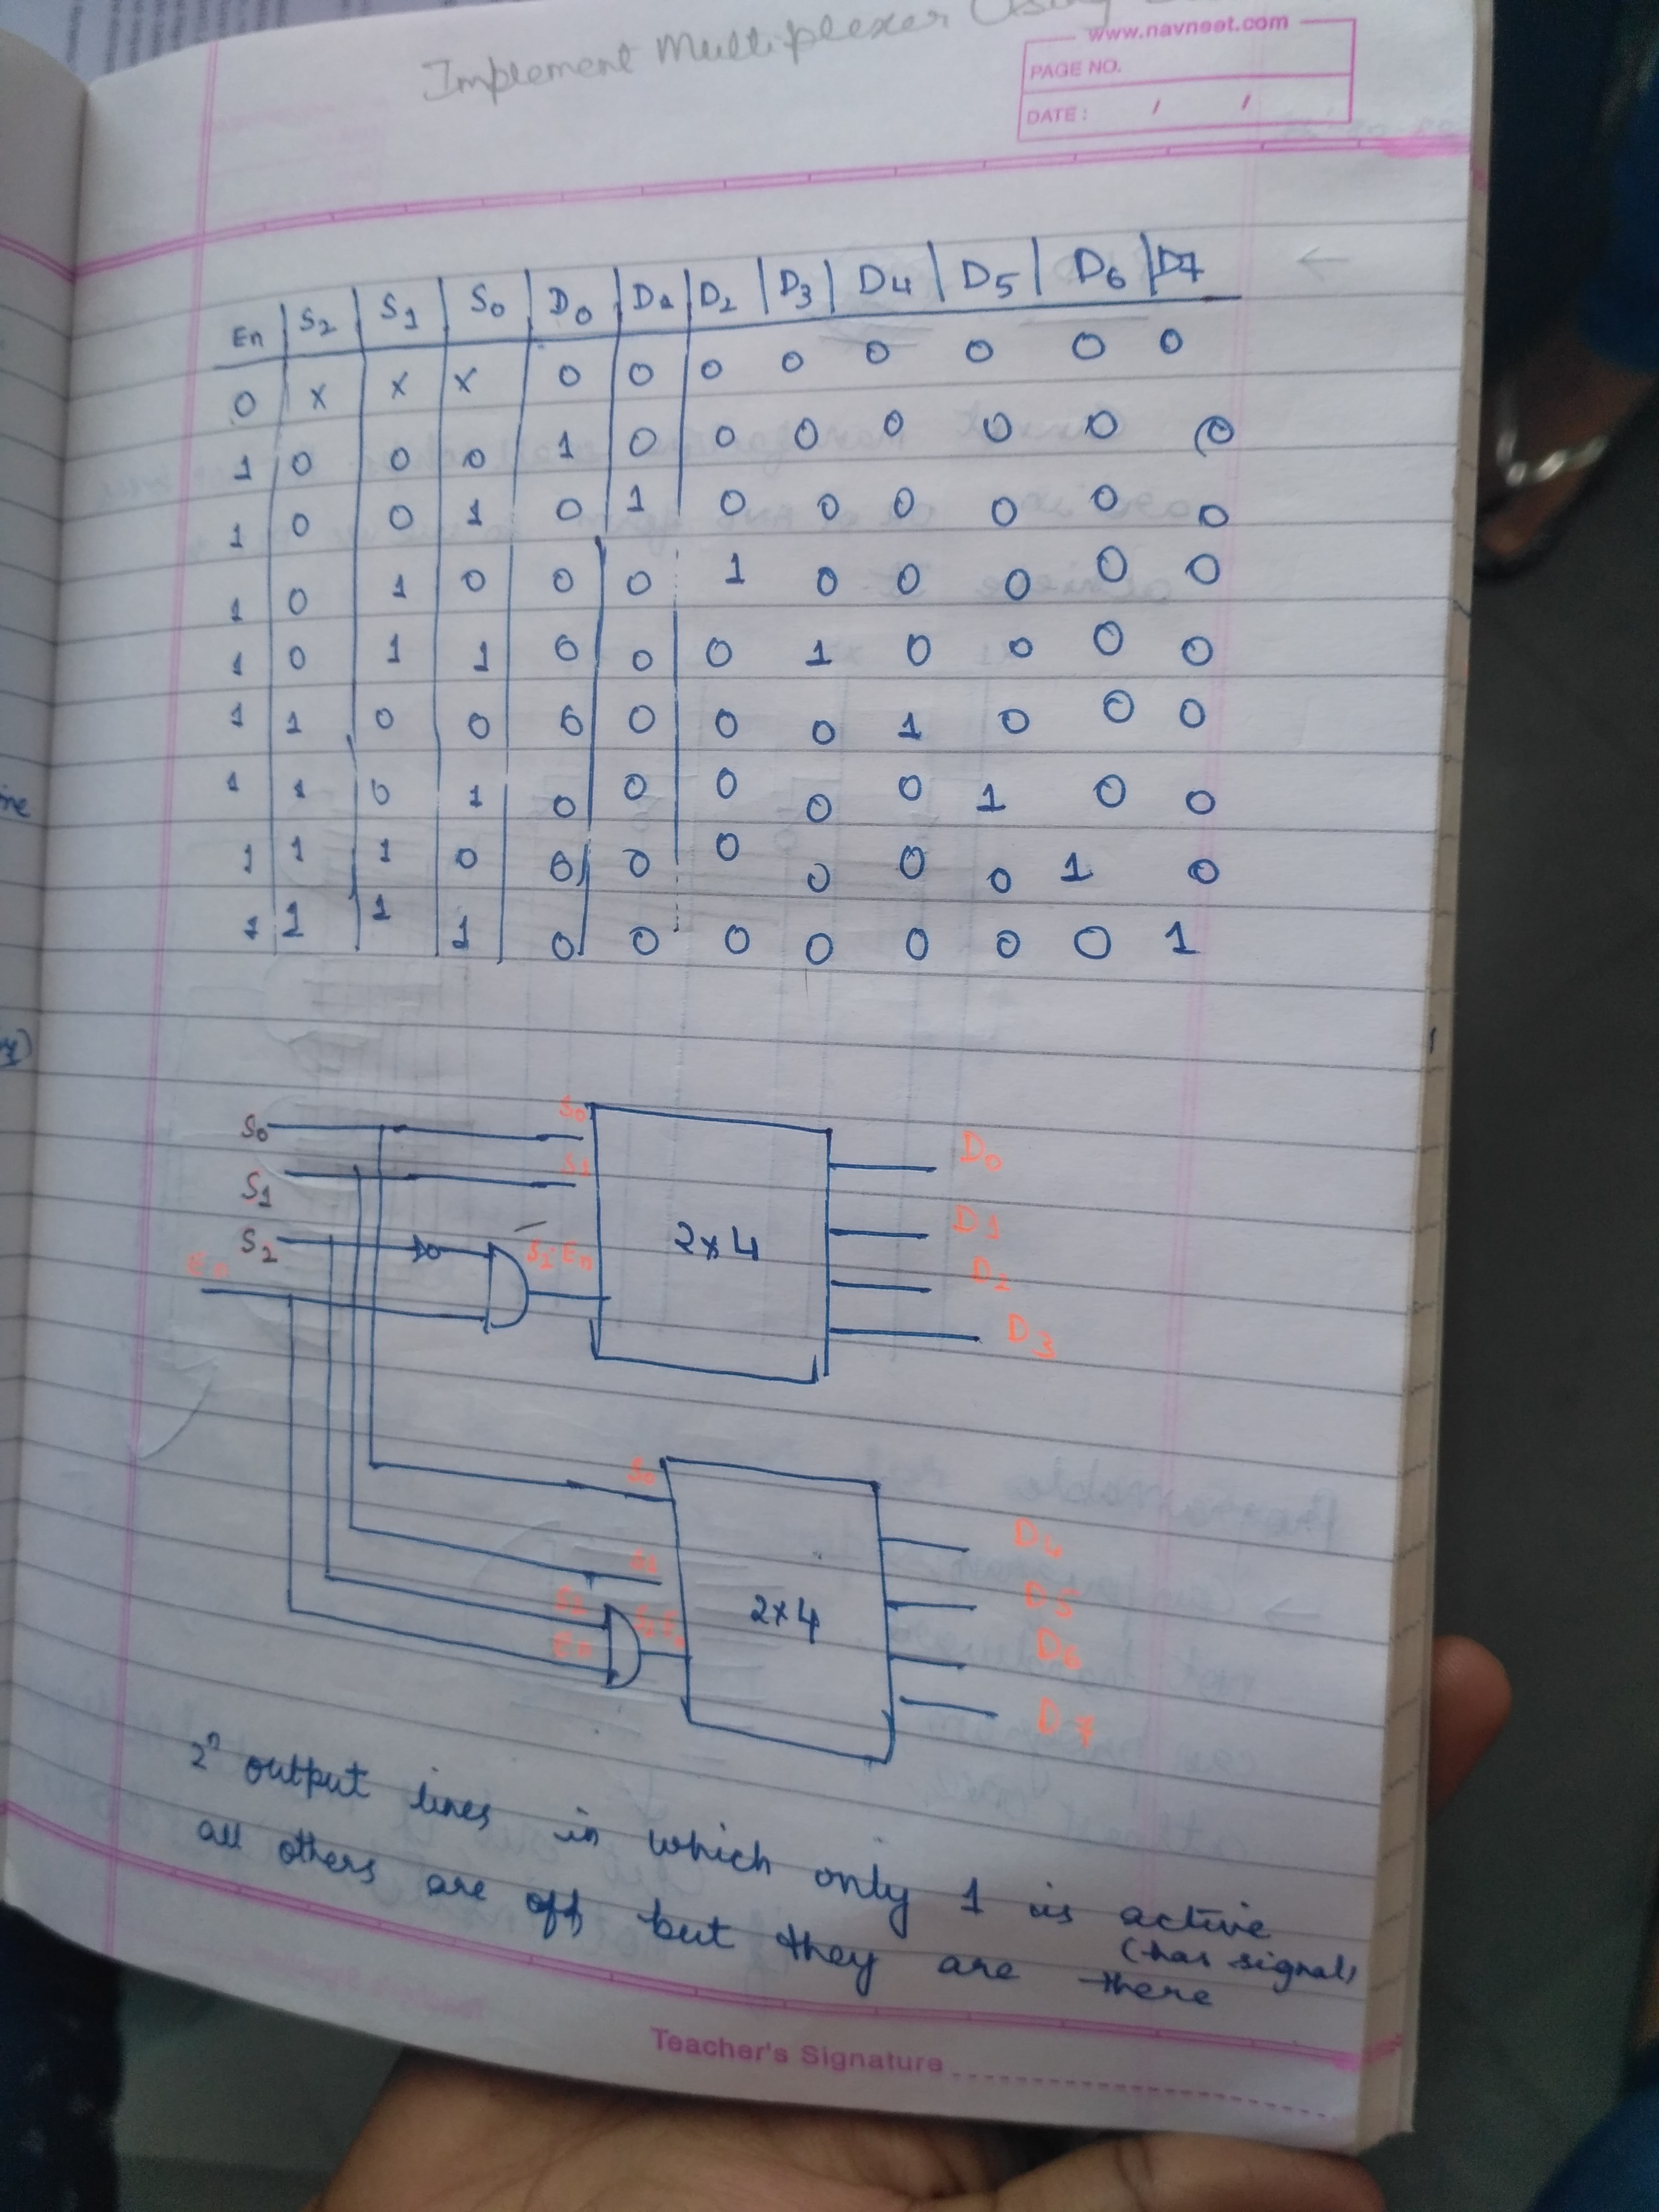 Implement Multiplexer Using
www.navneet.com
PAGE NO.
DATE : / /
En | S2 | S1 | S0 | D0 | D1 | D2 | D3 | D4 | D5 | D6 | D7
0 x x x 0 0 0 0 0 0 0 0
1 0 0 0 1 0 0 0 0 0 0 0
1 0 0 1 0 1 0 0 0 0 0 0
1 0 1 0 0 0 1 0 0 0 0 0
1 0 1 1 0 0 0 1 0 0 0 0
1 1 0 0 0 0 0 0 1 0 0 0
1 1 0 1 0 0 0 0 0 1 0 0
1 1 1 0 0 0 0 0 0 0 1 0
1 1 1 1 0 0 0 0 0 0 0 1
S0 S0 D0
S1 S1 D1
S2 2x4 D2
En D3
S0 D4
S1 D5
S2 2x4 D6
En D7
2ⁿ output lines in which only 1 is active
(has signal)
all others are off but they are there
Teacher's Signature